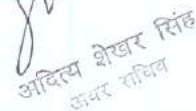 आदित्य शेखर सिंह
अवर सचिव